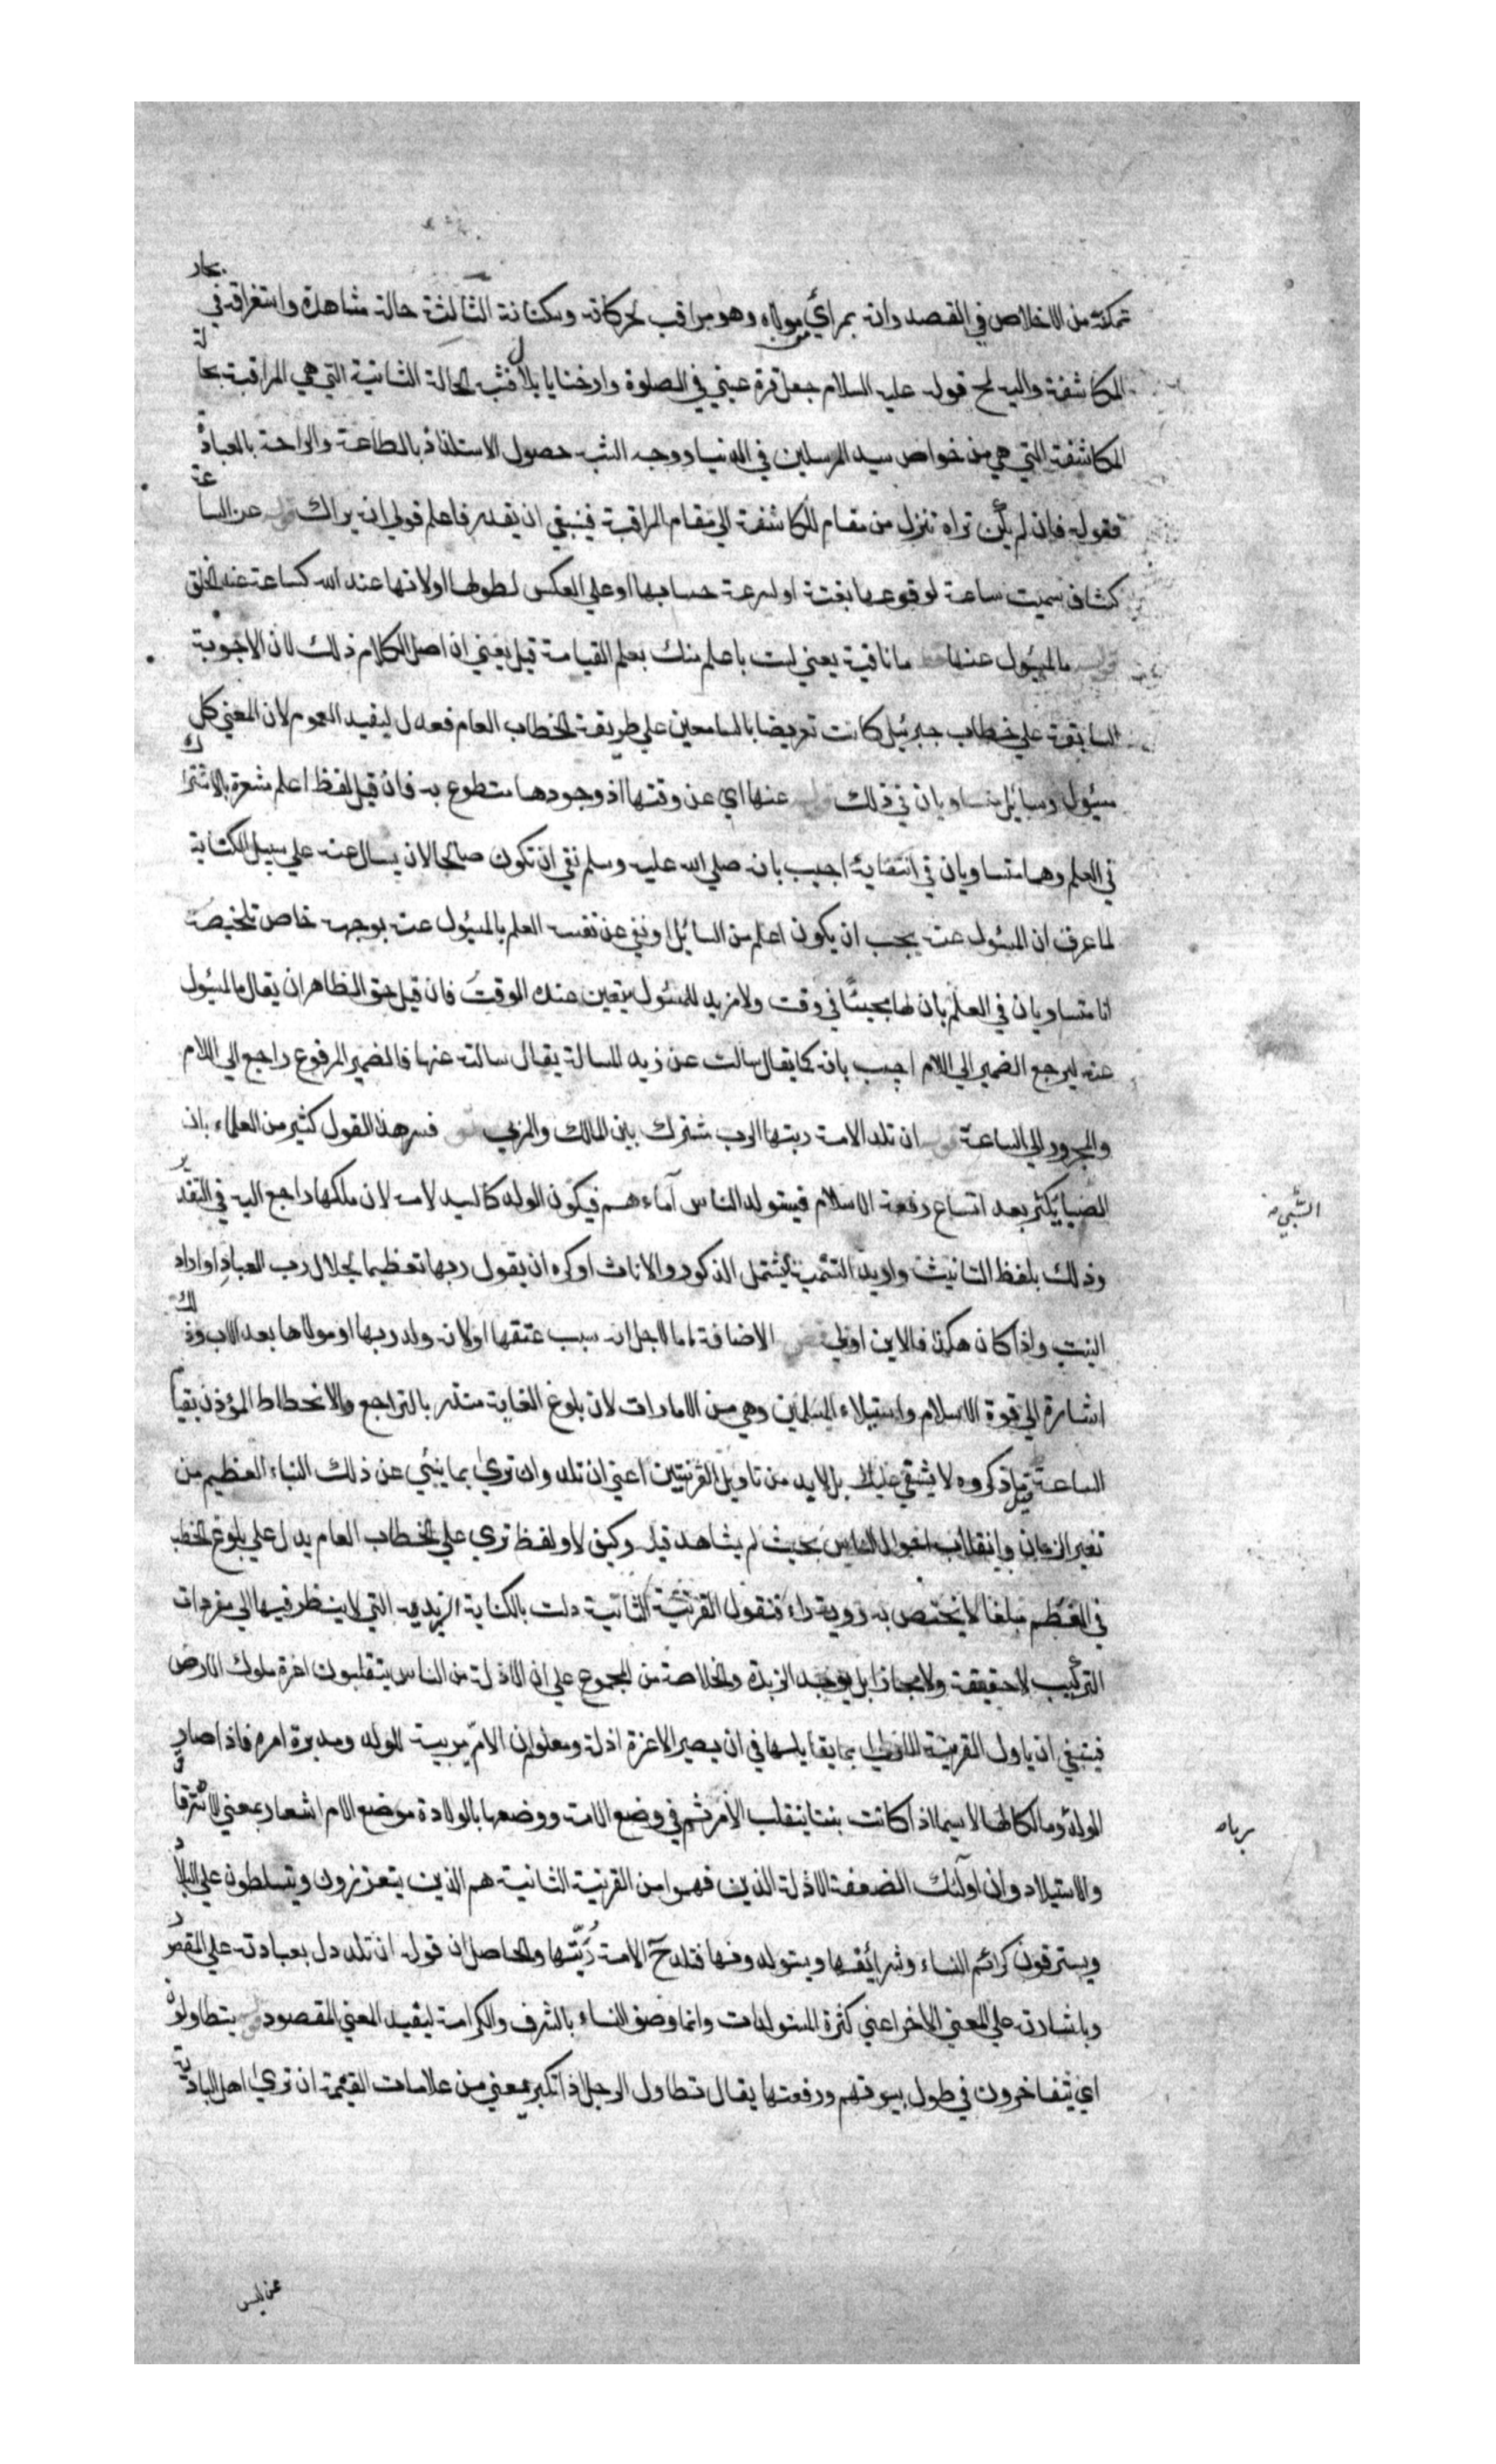 تمكنه من الاخلاص في القصد وانه بمرأي من مولاه وهو مراقب لحركاته وسكناته الثالثة حالة مشاهدة واستغراقه في بحار
المكاشفة واليه لمح قوله عليه السلام جعل قرة عيني في الصلوة وارحنا يا بلال فشبه الحالة الثانية التي هي المراقبة بحالة
المكاشفة التي هي من خواص سيد المرسلين في الدنيا ووجه الشبه حصول الاستلذاذ بالطاعة والراحة بالعبادة
فقوله فان لم تكن تراه تنزل من مقام المكاشفة الي مقام المراقبة فينبغي ان يقدر فاعلم قولي انه يراك قوله عن الساعة
كشاف سميت ساعة لوقوعها بغتة او لسرعة حسابها او علي العكس لطولها او لانها عند الله كساعة عند الخلق
قوله ما المسؤل عنها ما نافية يعني لست باعلم منك بعلم القيامة قيل يعني ان اصل الكلام ذلك لان الاجوبة
السابقة علي خطاب جبرئيل كانت تعريضا بالسامعين علي طريقة الخطاب العام فعدل ليفيد العموم لان المعني كل
مسؤل وسائل متساويان في ذلك قوله عنها اي عن وقتها اذ وجودها مقطوع به فان قيل لفظ اعلم مشعرة بالاشتراك
في العلم وهما متساويان في انتفاية اجيب بانه صلي الله عليه وسلم نفي ان تكون صالحا لان يسال عنه علي سبيل الكناية
لما عرف ان المسئول عنه يجب ان يكون اعلم من السائل او نفي عن نفسه العلم بالمسئول عنه بوجه خاص تلخيصه
انا متساويان في العلم بان لها مجيئا في وقت ولا مزيد للمسئول بتعين عند الوقت فان قيل حق الظاهر ان يقال ما المسئول
عنه ليرجع الضمير الي اللام اجيب بانه كما يقال سالت عن زيد المسالة يقال سالته عنها فالضمير المرفوع راجع الي اللام
والمجرور الي الساعة ان تلد الامة ربتها الرب مشترك بين المالك والمربي فسر هذا القول كثير من العلماء بان
الصبايا يكثر بعد اتساع رقعة الاسلام فيستولد الناس آماءهم فيكون الولد كالسيد لامه لان ملكها راجع اليه في التقدير
وذلك بلفظ التانيث واريد التسمية ليشتمل الذكور والاناث او كره ان يقول ربها تعظيما لجلال رب العباد او اراد
البنت واذا كان هكذا فالابن اولي الاضافة اما لاجل انه سبب عتقها او لانه ولد ربها او مولاها بعد الاب وذلك
اشارة الي قوة الاسلام واستيلاء المسلمين وهي من الامارات لان بلوغ الغاية منذر بالتراجع والانحطاط المؤذن بقيام
الساعة قيل ما ذكروه لا يشفي غليلا بل لابد من تاويل القرينتين اعني ان تلد وان تري بما ينبي عن ذلك النباء العظيم من
تغير الزمان وانقلاب احوال الناس بحيث لم يشاهد قبل وكيف لا ولفظ تري علي الخطاب العام يدل علي بلوغ الخطب
في العظم مبلغا لا يختص به روية راء فنقول القرينة الثانية دلت بالكناية الزبدية التي لا ينظر فيها الي مفردات
التركيب لا حقيقة ولا مجازا بل يوجد الزبدة والخلاصة من المجموع علي ان الاذلة من الناس ينقلبون اعزة ملوك الارض
فينبغي ان ياول القرينة الاولي بما يقابلها في ان يصير الاعزة اذلة ومعلوم ان الام مربية للولد ومدبرة امره فاذا صار
الولد وما لكا لها لا سيما اذا كانت بنتا ينقلب الامر ثم في وضع الامة ووضعها بالولادة موضع الام اشعار بمعني الاسترقاق
والاستيلاد وان اولئك الضعفة الاذلة الذين فهموا من القرينة الثانية هم الذين يتعززون ويتسلطون علي البلاد
ويسترقون كرائم النساء وشرائفها ويستولدونها فتلد الامة ربتها والحاصل ان قوله ان تلد دل بعبادته علي المقصود
وباشارته علي المعني الاخر اعني كثرة المستولدات وانما وصف النساء بالشرف والكرامة ليفيد المعني المقصود قوله يتطاولون
اي يتفاخرون في طول بيوتهم ورفعتها يقال تطاول الرجل اذا تكبر يعني من علامات القيمة ان تري اهل البادية